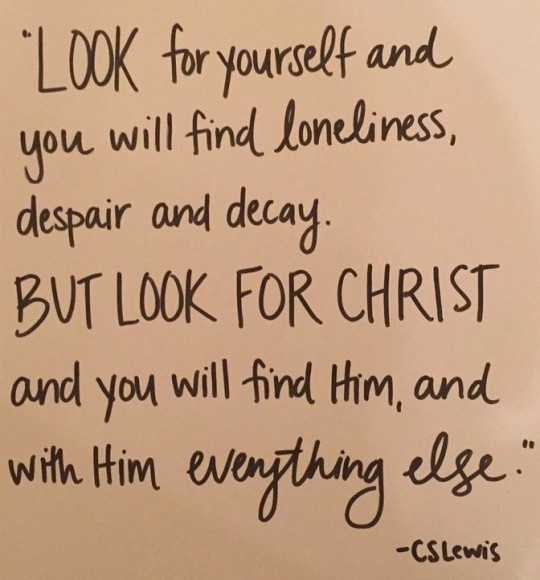 "LOOK for yourself and
you will find loneliness,
despair and decay.
BUT LOOK FOR CHRIST
and you will find Him, and
with Him everything else."
-CSLewis